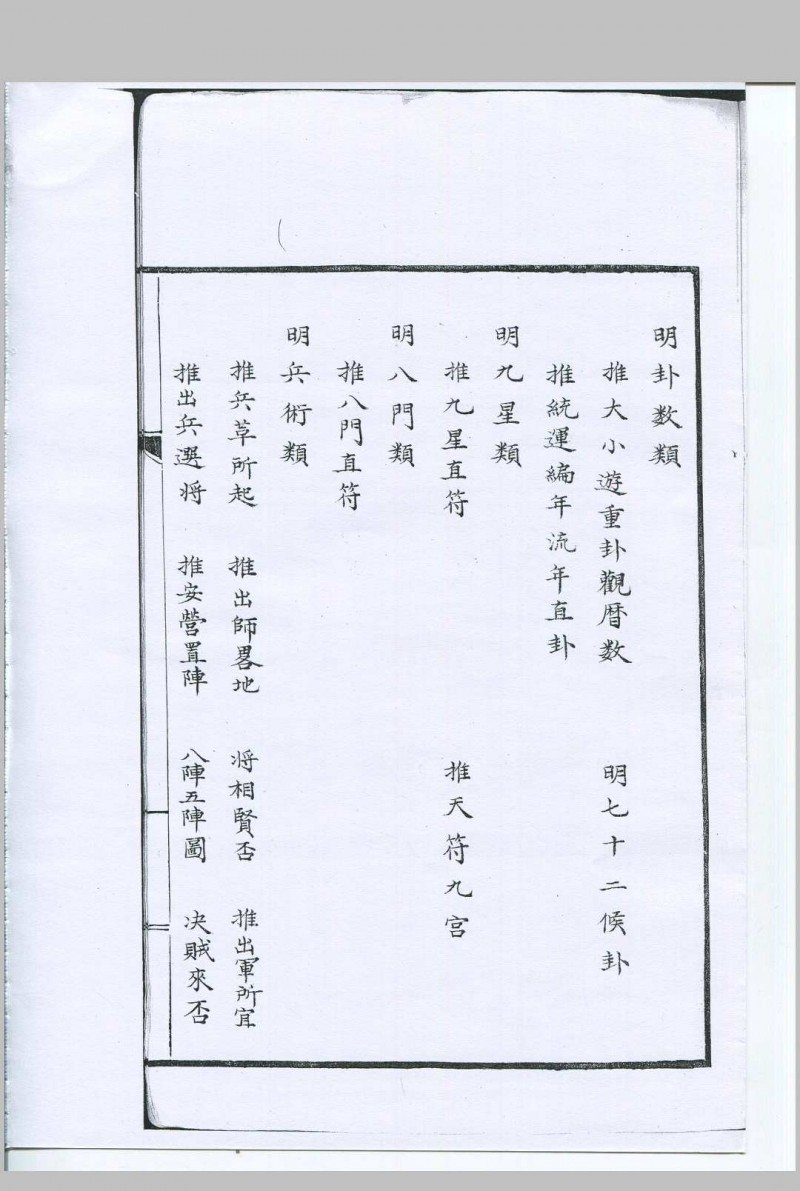 明卦数類
推大小遊重卦觀暦数　明七十二候卦
推統運編年流年直卦
明九星類
推九星直符　推天符九宫
明八門類
推八門直符
明兵術類
推兵草所起　推出師畧地　将相賢否　推出軍所宜
推出兵選将　推安營置陣　八陣五陣圖　决賊來否